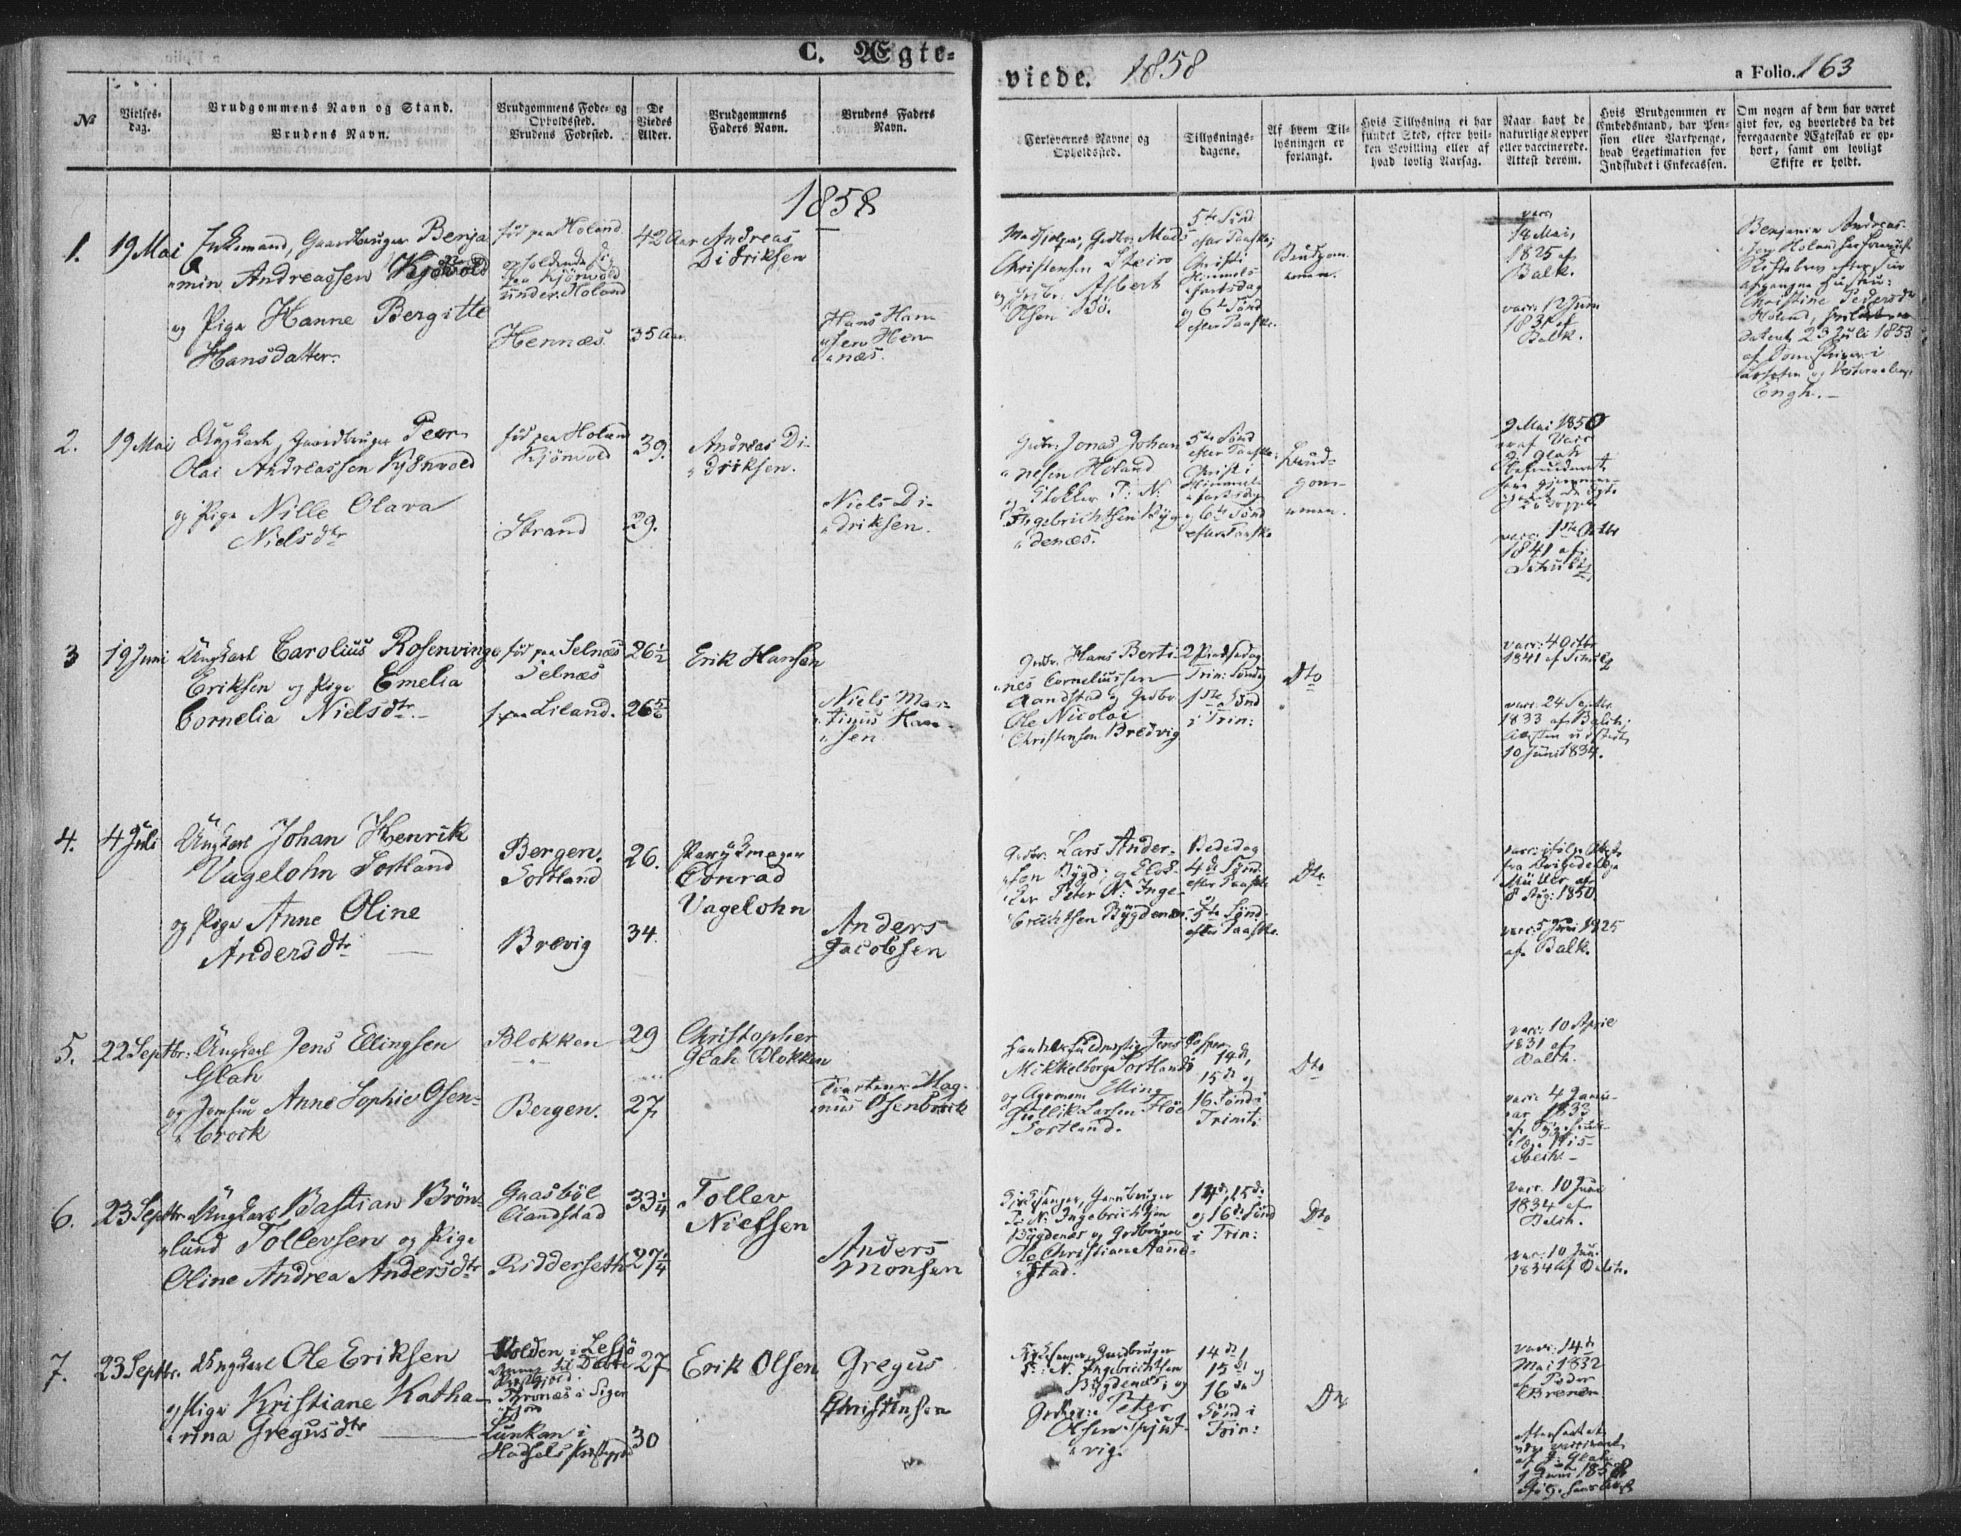 C. Ægte-
viede. 1858
a Folio. 163
No
Vielses-
dag.
Brudgommens Navn og Stand.
Brudens Navn.
Brudgommens Føde- og
Opholdssted.
Brudens Fødested.
De
Viedes
Alder.
Brudgommens
Faders Navn.
Brudens Faders
Navn.
Forlovernes Navne og
Opholdssted.
Tillysnings-
dagene.
Af hvem Til-
lysningen er
forlangt.
Hvis Tillysning ei har
fundet Sted, efter hvil-
ken Bevilling eller af
hvad lovlig Aarsag.
Naar havt de
naturlige Kopper
eller vaccinerede.
Attest derom.
Hvis Brudgommen er
Embedsmand, har Pen-
sion eller Vartpenge,
hvad Legetimation for
Indskudet i Enkecassen.
Om nogen af dem har været
givt før, og hvorledes da det
foregaaende Ægteskab er op-
hørt, samt om lovligt
Skifte er holdt.
1858
1.
19 Mai
Enkemand, Gaardbruger Benja
min Andreassen Kjönvold
og Pige Hanne Bergitte
Hansdatter.
fød paa Holand
Kjönvold
under Holand
Hennæs
42 Aar
35 Aar
Andreas
Didriksen
Hans Han
sen Hen
næs.
Mads
Christensen
og Grbr. Albert
Olsen Bö.
5te Sönd
efter Paaske,
Christi
Himmels
fartsdag
og 6te Sönd
efter Paaske.
Brudgom
men.
vacc.
18 Mai,
1825 af
Balk.
vacc. 12 Juni
1831 af
Balk.
Benjamin Andreas
Holand har
Skiftebrev efter sin
afgangne Hustru
Christine Pedersdr
Holand,
dateret 23 Juli 1853
af
og Vesteraalen
Engh.
2.
19 Mai
Ungkarl, Gaardbruger Peer
Olai Andreassen Kjönvold
og Pige Nille Olava
Nielsdtr
fød paa Holand
Kjönvold
Strand
39.
29.
Andreas Di-
driksen.
Niels Di-
driksen.
Grbr. Jonas Johan
nesen Holand
og Klokker P: N:
Ingebrichtsen Byg
denæs.
5te Sönd
efter Paaske,
Christi
Himmel
fartsdag
og 6te Sönd
efter Paaske
Brud-
gom-
men.
9 Mai 1850
af
Glah
vacc. 1ste Octbr
1841 af
Schultz
3
19 Juni
Ungkarl Carolius Rosenvinge
Eriksen og Pige Emelia
Cornelia Nielsdtr.
fød paa Selnæs
Selnæs
f. paa Liland.
26½
26 5/6
Erik Hansen
Niels Mar
tinus Han
sen
Grbr. Hans Berti
nes Corneliussen
Aandstad og Grdbr
Ole Nicolai
Christensen Bredvig
2 Pindsedag
Trin: Söndag
1ste Sönd
i Trin:
Dto
vacc: 4 Octbr
1841 af Schultz
vacc. 24 Septbr.
1833 af Balch;
Attesten udstedt
10 Juni 1834.
4.
4 Juli
Ungkarl Johan Henrik
Vagelohn Sortland
og Pige Anne Oline
Andersdtr
Bergen.
Sortland
Brevig
26.
34.
Parykmager
Conrad
Vagelohn
Anders
Jacobsen
Grdbr. Lars Ander-
sen Bygd: og Klok-
ker Peter N: Inge-
brichtsen Bygdenæs.
Bededag
4de Sönd.
efter Paaske
og 5te Sönd.
efter Paaske.
Dto
vacc: ifølge Attest
fra
Müller af
8 Aug: 1850.
vacc. 5 Juni 1825
af Balk.
5.
22 Septbr:
Ungkarl Jens Ellingsen
Glah
og Jomfru Anne Sophie Osen-
brock
Blokken
Bergen.
29
27
Christopher
Glah Blokken
Carsten Mag-
nus Osenbrock
Handelsfuldmægtig Jens Casper
Mikkelborg Sortland
og Agronom Elling
Gullik Larsen Flöe
Sortland.
14de,
15de og
16 Sönd i
Trinit:
Dto
vacc: 10 April
1831 af
Balch.
vacc: 4 Janu-
ar 1833
af
6.
23 Septbr.
Ungkarl Bastian Brön-
lund Tollevsen og Pige
Oline Andrea Andersdtr
Gaasböl
Aandstad
Ridderseth
33¼
27¼
Tollev
Nielsen
Anders
Monsen
Kirkesanger, Gaardbruger
P: N: Ingebrichtsen
Bygdenæs og Grdbruger
Ole Christian Aand-
stad.
14de, 15de
og 16de Sönd
i Trin:
Dto
vacc. 10 Juni
1834 af
Balch.
vac: 10 Juni
1834 af Balch.
7.
23 Septbr.
Ungkarl Ole Eriksen
og Pige Kristiane Katha-
rina Gregusdtr
Holden i Lesjö
Lunkan i
Hadsels Præstegjeld
27
30
Erik Olsen
Gregus
Christensen
Kirkesanger, Gaardbruger
P: N: Ingebrichtsen
Bygdenæs, og
Gaardbr: Peter
Olsen
vig.
14de,
15de og
16de
Sönd i
Trin:
Dto
vacc: 14de
Mai 1832
af Peder
Brenen
af J: Glah
Juni 1858